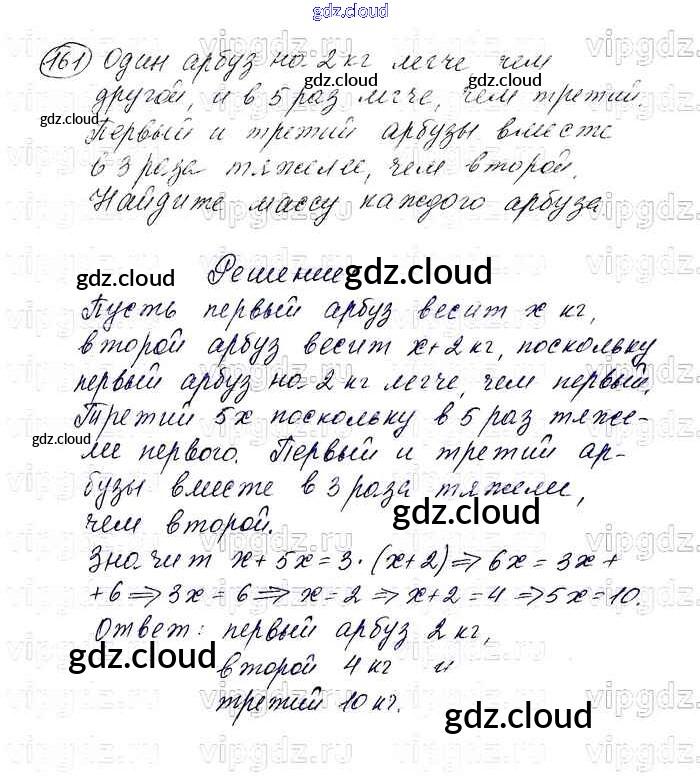 gdz.cloud
161 Один арбуз на 2 кг легче чем
другой, и в 5 раз легче, чем третий.
Первый и третий арбузы вместе
в 3 раза тяжелее, чем второй.
Найдите массу каждого арбуза
Решение
Пусть первый арбуз весит x кг,
второй арбуз весит x+2 кг, поскольку
первый арбуз на 2 кг легче, чем первый.
Третий 5x поскольку в 5 раз тяже-
лее первого. Первый и третий ар-
бузы вместе в 3 раза тяжелее,
чем второй.
Значит x + 5x = 3 · (x+2) ⇒ 6x = 3x +
+6 ⇒ 3x = 6 ⇒ x = 2 ⇒ x+2 = 4 ⇒ 5x = 10.
Ответ: первый арбуз 2 кг,
второй 4 кг и
третий 10 кг.
gdz.cloud
gdz.cloud
gdz.cloud
gdz.cloud
gdz.cloud
gdz.cloud
gdz.cloud
gdz.cloud
gdz.cloud
vipgdz.ru